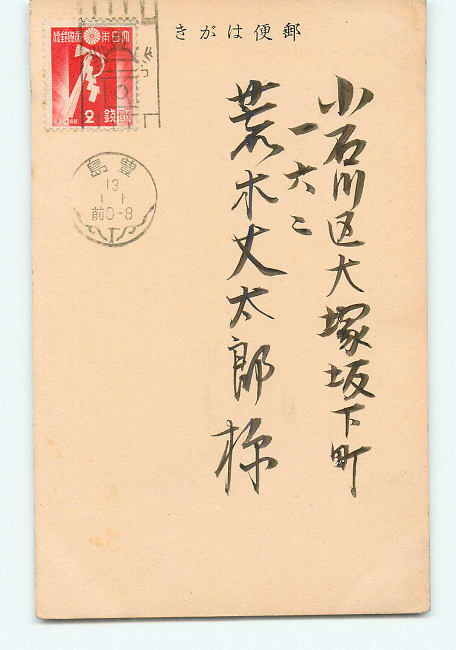 郵便はがき
小石川区大塚坂下町
一六二
荒木丈太郎様
大日本帝国郵便
2
銭
豊島
13
1 1
前0-8